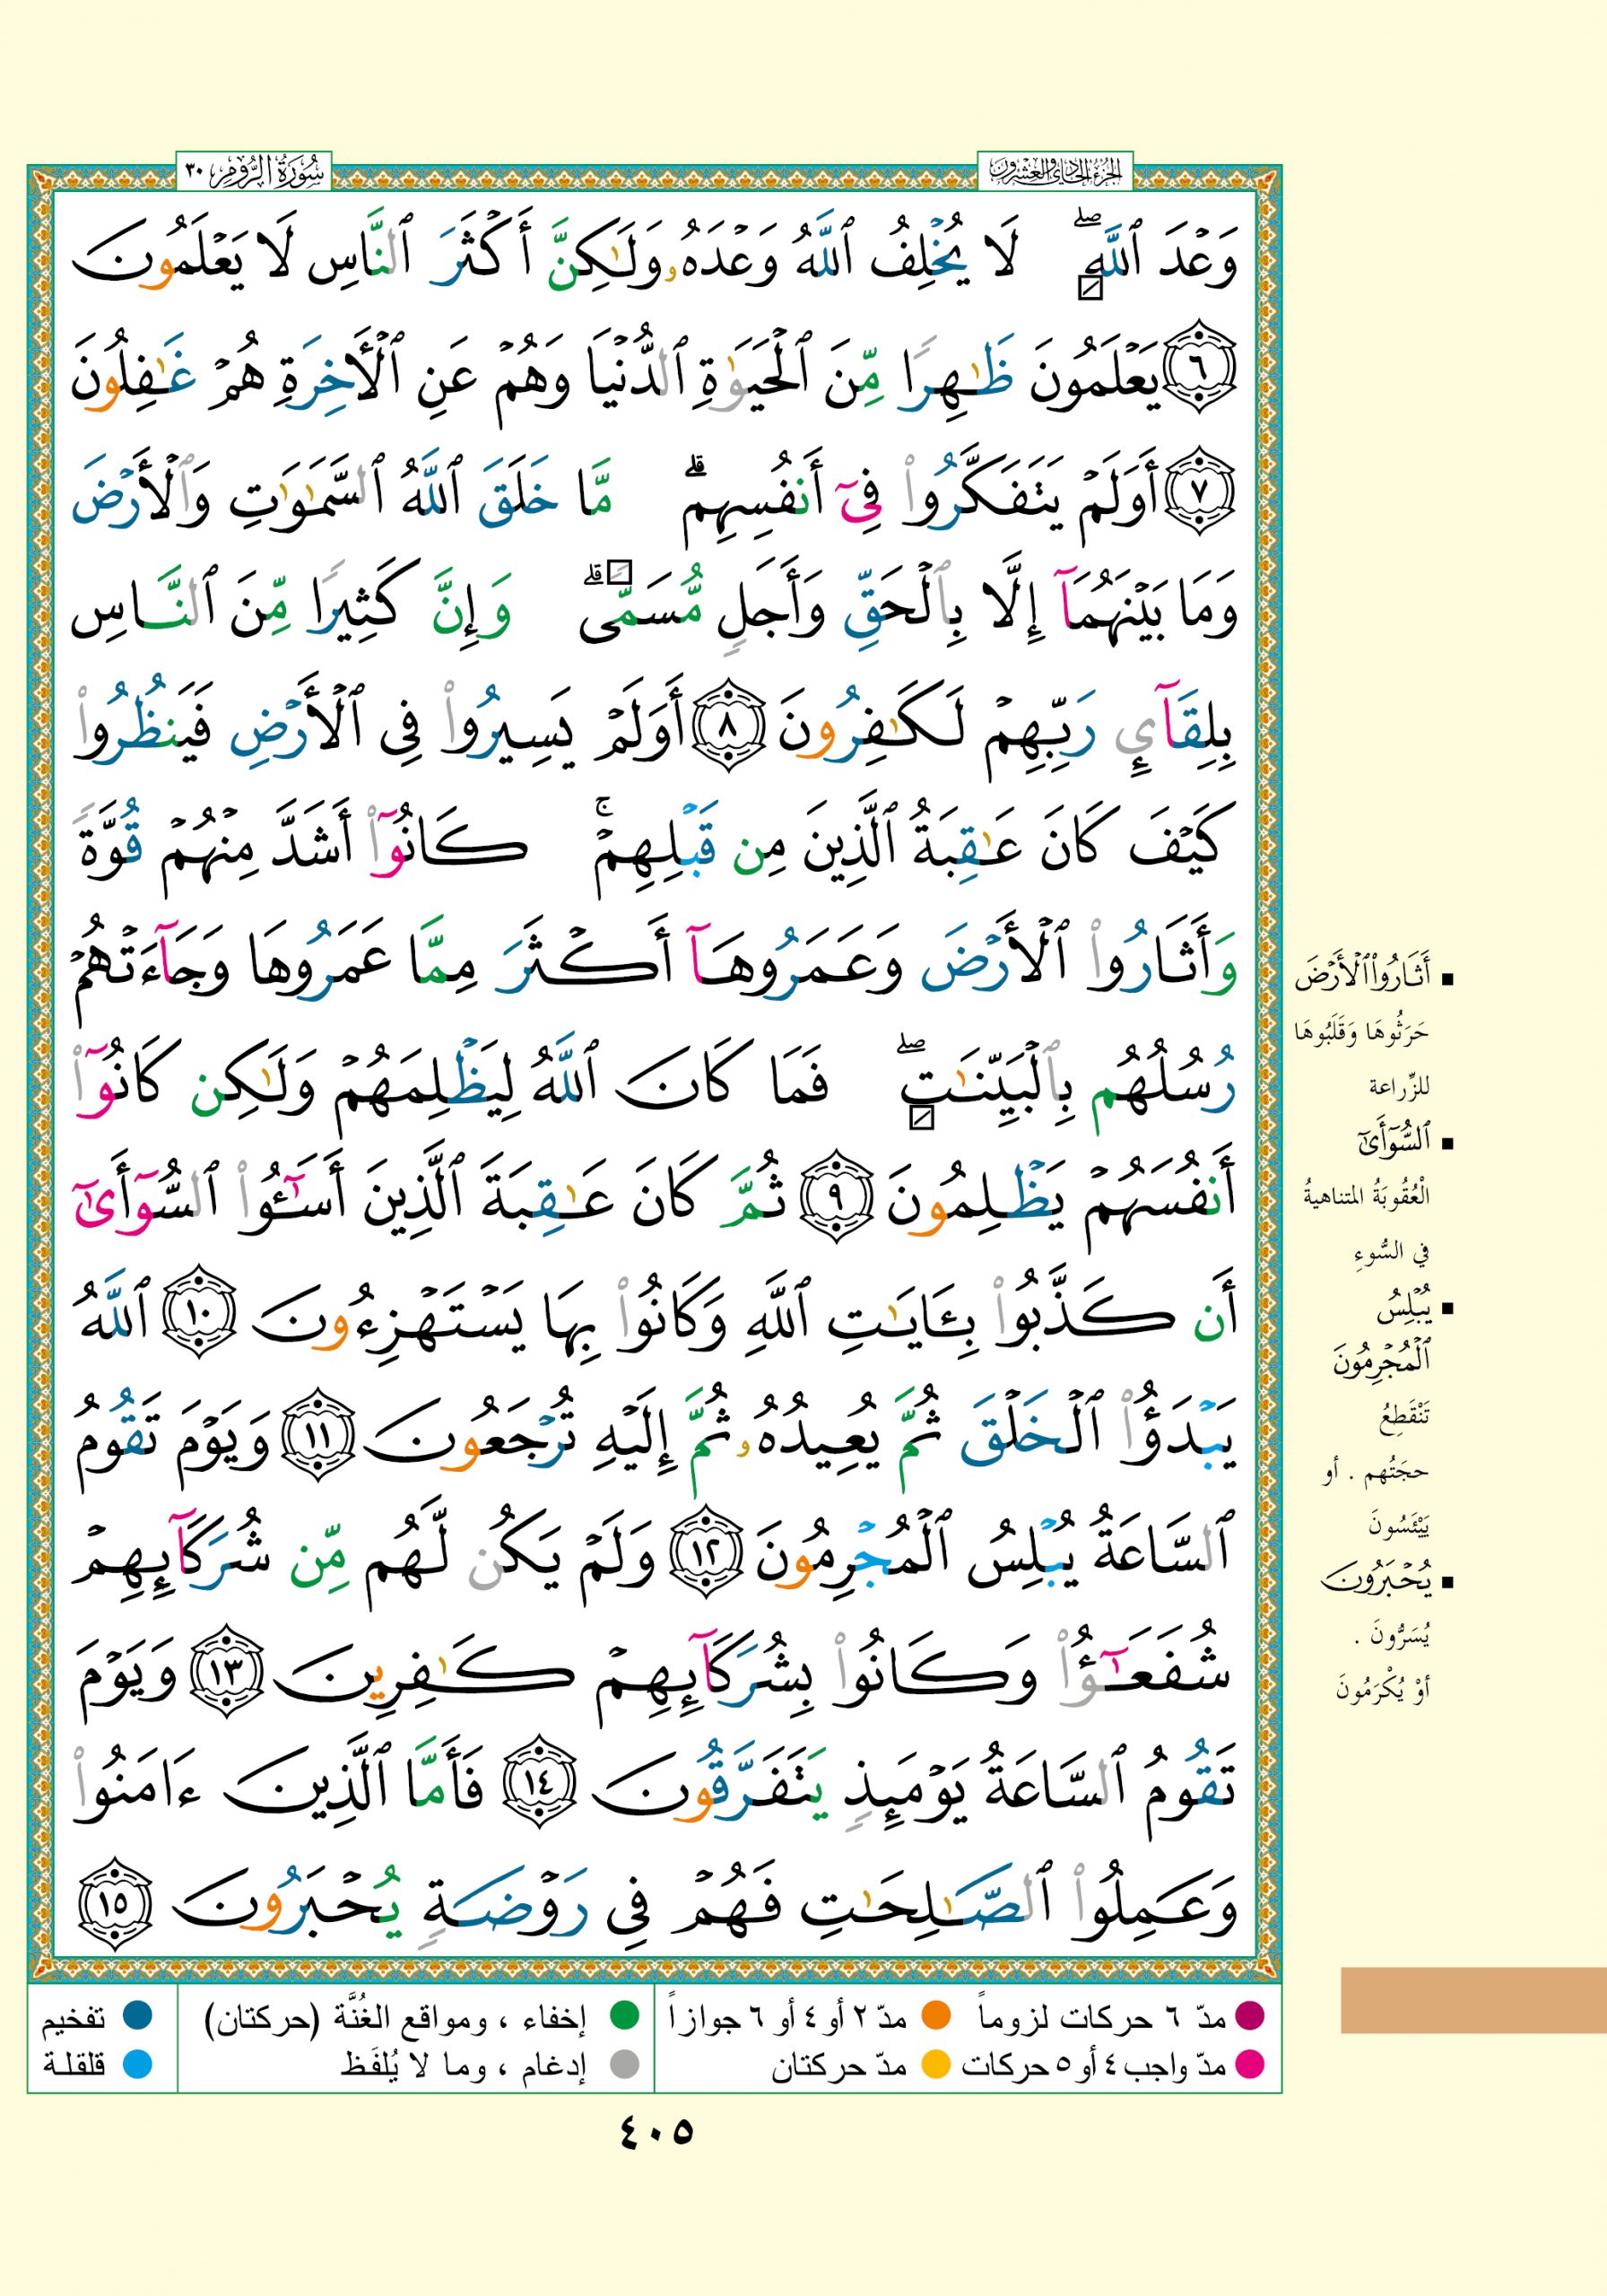 الجزء الحادي والعشرون
سُورَةُ الرُّومِ ٣٠
وَعْدَ ٱللَّهِ ۖ لَا يُخْلِفُ ٱللَّهُ وَعْدَهُۥ وَلَٰكِنَّ أَكْثَرَ ٱلنَّاسِ لَا يَعْلَمُونَ
٦ يَعْلَمُونَ ظَٰهِرًا مِّنَ ٱلْحَيَوٰةِ ٱلدُّنْيَا وَهُمْ عَنِ ٱلْأَخِرَةِ هُمْ غَٰفِلُونَ
٧ أَوَلَمْ يَتَفَكَّرُوا۟ فِىٓ أَنفُسِهِم ۗ مَّا خَلَقَ ٱللَّهُ ٱلسَّمَٰوَٰتِ وَٱلْأَرْضَ
وَمَا بَيْنَهُمَآ إِلَّا بِٱلْحَقِّ وَأَجَلٍ مُّسَمًّى ۗ وَإِنَّ كَثِيرًا مِّنَ ٱلنَّاسِ
بِلِقَآئِ رَبِّهِمْ لَكَٰفِرُونَ ٨ أَوَلَمْ يَسِيرُوا۟ فِى ٱلْأَرْضِ فَيَنظُرُوا۟
كَيْفَ كَانَ عَٰقِبَةُ ٱلَّذِينَ مِن قَبْلِهِمْ ۚ كَانُوٓا۟ أَشَدَّ مِنْهُمْ قُوَّةً
وَأَثَارُوا۟ ٱلْأَرْضَ وَعَمَرُوهَآ أَكْثَرَ مِمَّا عَمَرُوهَا وَجَآءَتْهُمْ
رُسُلُهُم بِٱلْبَيِّنَٰتِ ۖ فَمَا كَانَ ٱللَّهُ لِيَظْلِمَهُمْ وَلَٰكِن كَانُوٓا۟
أَنفُسَهُمْ يَظْلِمُونَ ٩ ثُمَّ كَانَ عَٰقِبَةَ ٱلَّذِينَ أَسَٰٓـُٔوا۟ ٱلسُّوٓأَىٰٓ
أَن كَذَّبُوا۟ بِـَٔايَٰتِ ٱللَّهِ وَكَانُوا۟ بِهَا يَسْتَهْزِءُونَ ١٠ ٱللَّهُ
يَبْدَؤُا۟ ٱلْخَلْقَ ثُمَّ يُعِيدُهُۥ ثُمَّ إِلَيْهِ تُرْجَعُونَ ١١ وَيَوْمَ تَقُومُ
ٱلسَّاعَةُ يُبْلِسُ ٱلْمُجْرِمُونَ ١٢ وَلَمْ يَكُن لَّهُم مِّن شُرَكَآئِهِمْ
شُفَعَٰٓؤُا۟ وَكَانُوا۟ بِشُرَكَآئِهِمْ كَٰفِرِينَ ١٣ وَيَوْمَ
تَقُومُ ٱلسَّاعَةُ يَوْمَئِذٍ يَتَفَرَّقُونَ ١٤ فَأَمَّا ٱلَّذِينَ ءَامَنُوا۟
وَعَمِلُوا۟ ٱلصَّٰلِحَٰتِ فَهُمْ فِى رَوْضَةٍ يُحْبَرُونَ ١٥
أَثَارُوا۟ ٱلْأَرْضَ
حَرَثُوهَا وَقَلَبُوهَا
للزِّراعة
ٱلسُّوٓأَىٰٓ
الْعُقُوبَةُ المتناهيةُ
في السُّوءِ
يُبْلِسُ
ٱلْمُجْرِمُونَ
تَنْقَطِعُ
حجَتُهم . أو
يَيْئَسُونَ
يُحْبَرُونَ
يُسَرُّونَ .
أوْ يُكْرَمُونَ
مدّ ٦ حركات لزوماً
مدّ ٢ أو ٤ أو ٦ جوازاً
إخفاء ، ومواقع الغُنَّة (حركتان)
تفخيم
مدّ واجب ٤ أو ٥ حركات
مدّ حركتان
إدغام ، وما لا يُلفَظ
قلقلة
٤٠٥